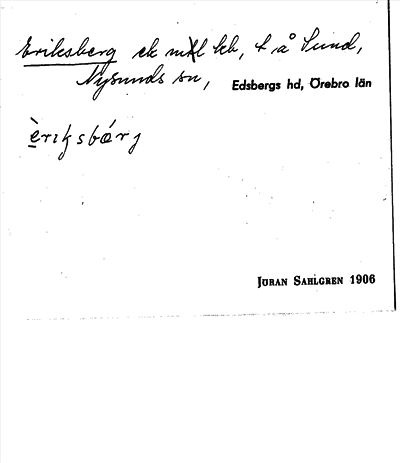 Eriksberg ek mtl lch, t å Sund,
Nysunds sn, Edsbergs hd, Örebro län
èriksbǽrj
JÖRAN SAHLGREN 1906